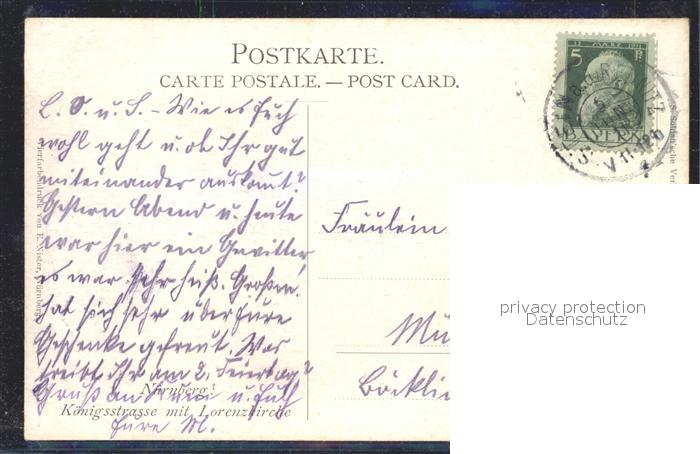 POSTKARTE.
CARTE POSTALE. — POST CARD.
L. O. u. L. – Wie es Euch
wohl geht u. ob Ihr gut
miteinander auskomt?
Gestern Abend u. heute
war hier ein Gewitter,
es war sehr heiß.
hat sich sehr über Eure
Geschenke gefreut. Was
treibt Ihr am 2. Feiertag?
Gruß an u. Euch
Eure M.
Nürnberg:
Königsstrasse mit Lorenzkirche
Vierfarbendruck von E. Nister, Nürnberg
Fräulein
Mü
Böckli
5
BAYERN
privacy protection
Datenschutz